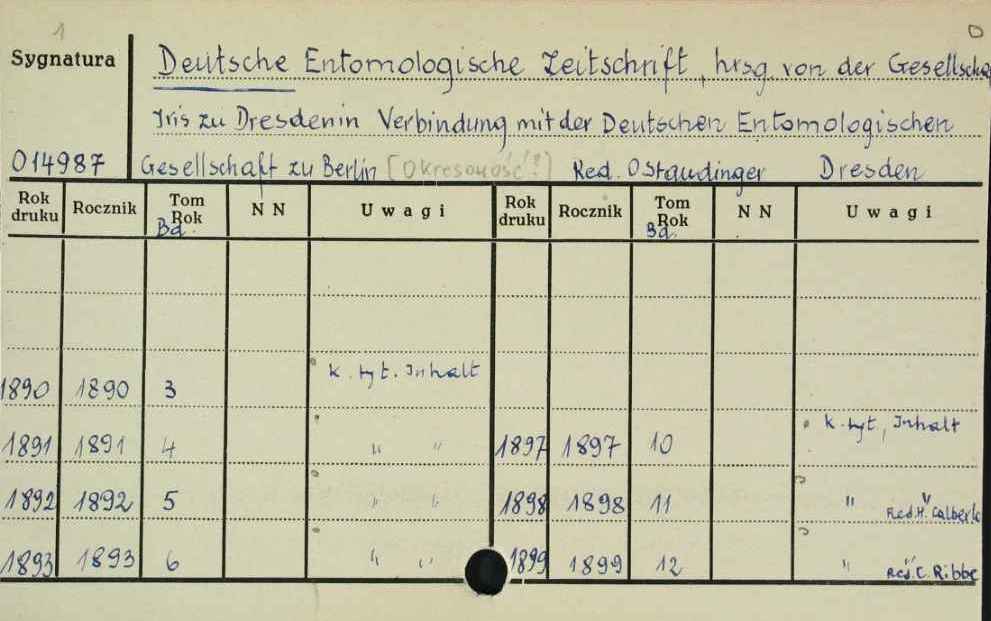 1
Sygnatura Deutsche Entomologische Zeitschrift, hrsg. von der Gesellscha
Iris zu Dresdenin Verbindung mit der Deutschen Entomologischen
014987 Gesellschaft zu Berlin [Okresowość?] Red. O Staudinger Dresden
Rok druku Rocznik Tom Rok Bd. N N Uwagi Rok druku Rocznik Tom Rok Bd. N N Uwagi
1890 1890 3 k. tyt. Inhalt
1891 1891 4 " " 1897 1897 10 k. tyt, Inhalt
1892 1892 5 " " 1898 1898 11 " " Red. H. Calberla
1893 1893 6 " " 1899 1899 12 " " Red. C. Ribbe